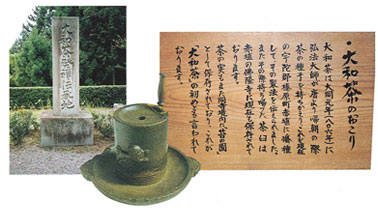 ・大和茶のおこり
大和茶は、大同元年(八〇六年)に
弘法大師が唐より帰朝の際
茶の種子を持ちかえりこれを現在
の宇陀郡榛原町赤埴に播種
して、その製法を伝えられました。
またその際持ち帰った茶臼は
赤埴の佛隆寺に現在も保存されて
茶の実もまた同寺境内に「苔の園」
として保存されており、これが
大和茶の初めと言われて
おります。
大和茶発祥伝承地